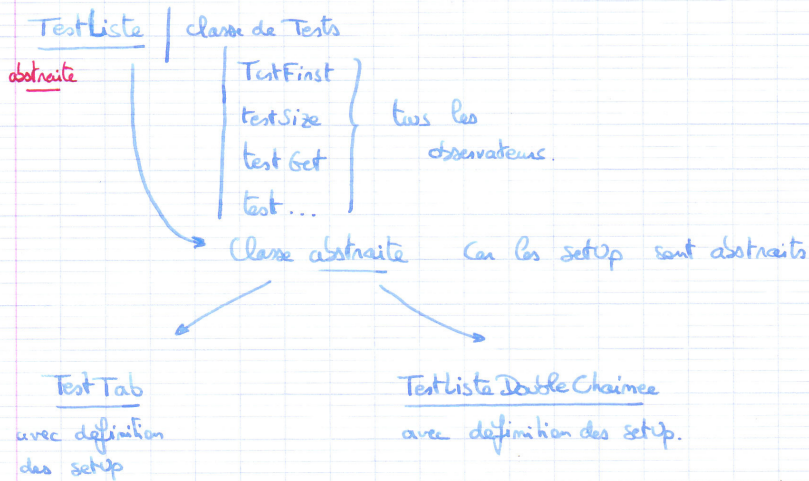 TestListe | classe de Tests
abstraite
TestFirst
testSize
test Get
test...
tous les
observateurs.
Classe abstraite car les setUp sont abstraits
TestTab
avec définition
des setUp
TestListeDoubleChainee
avec définition des setUp.